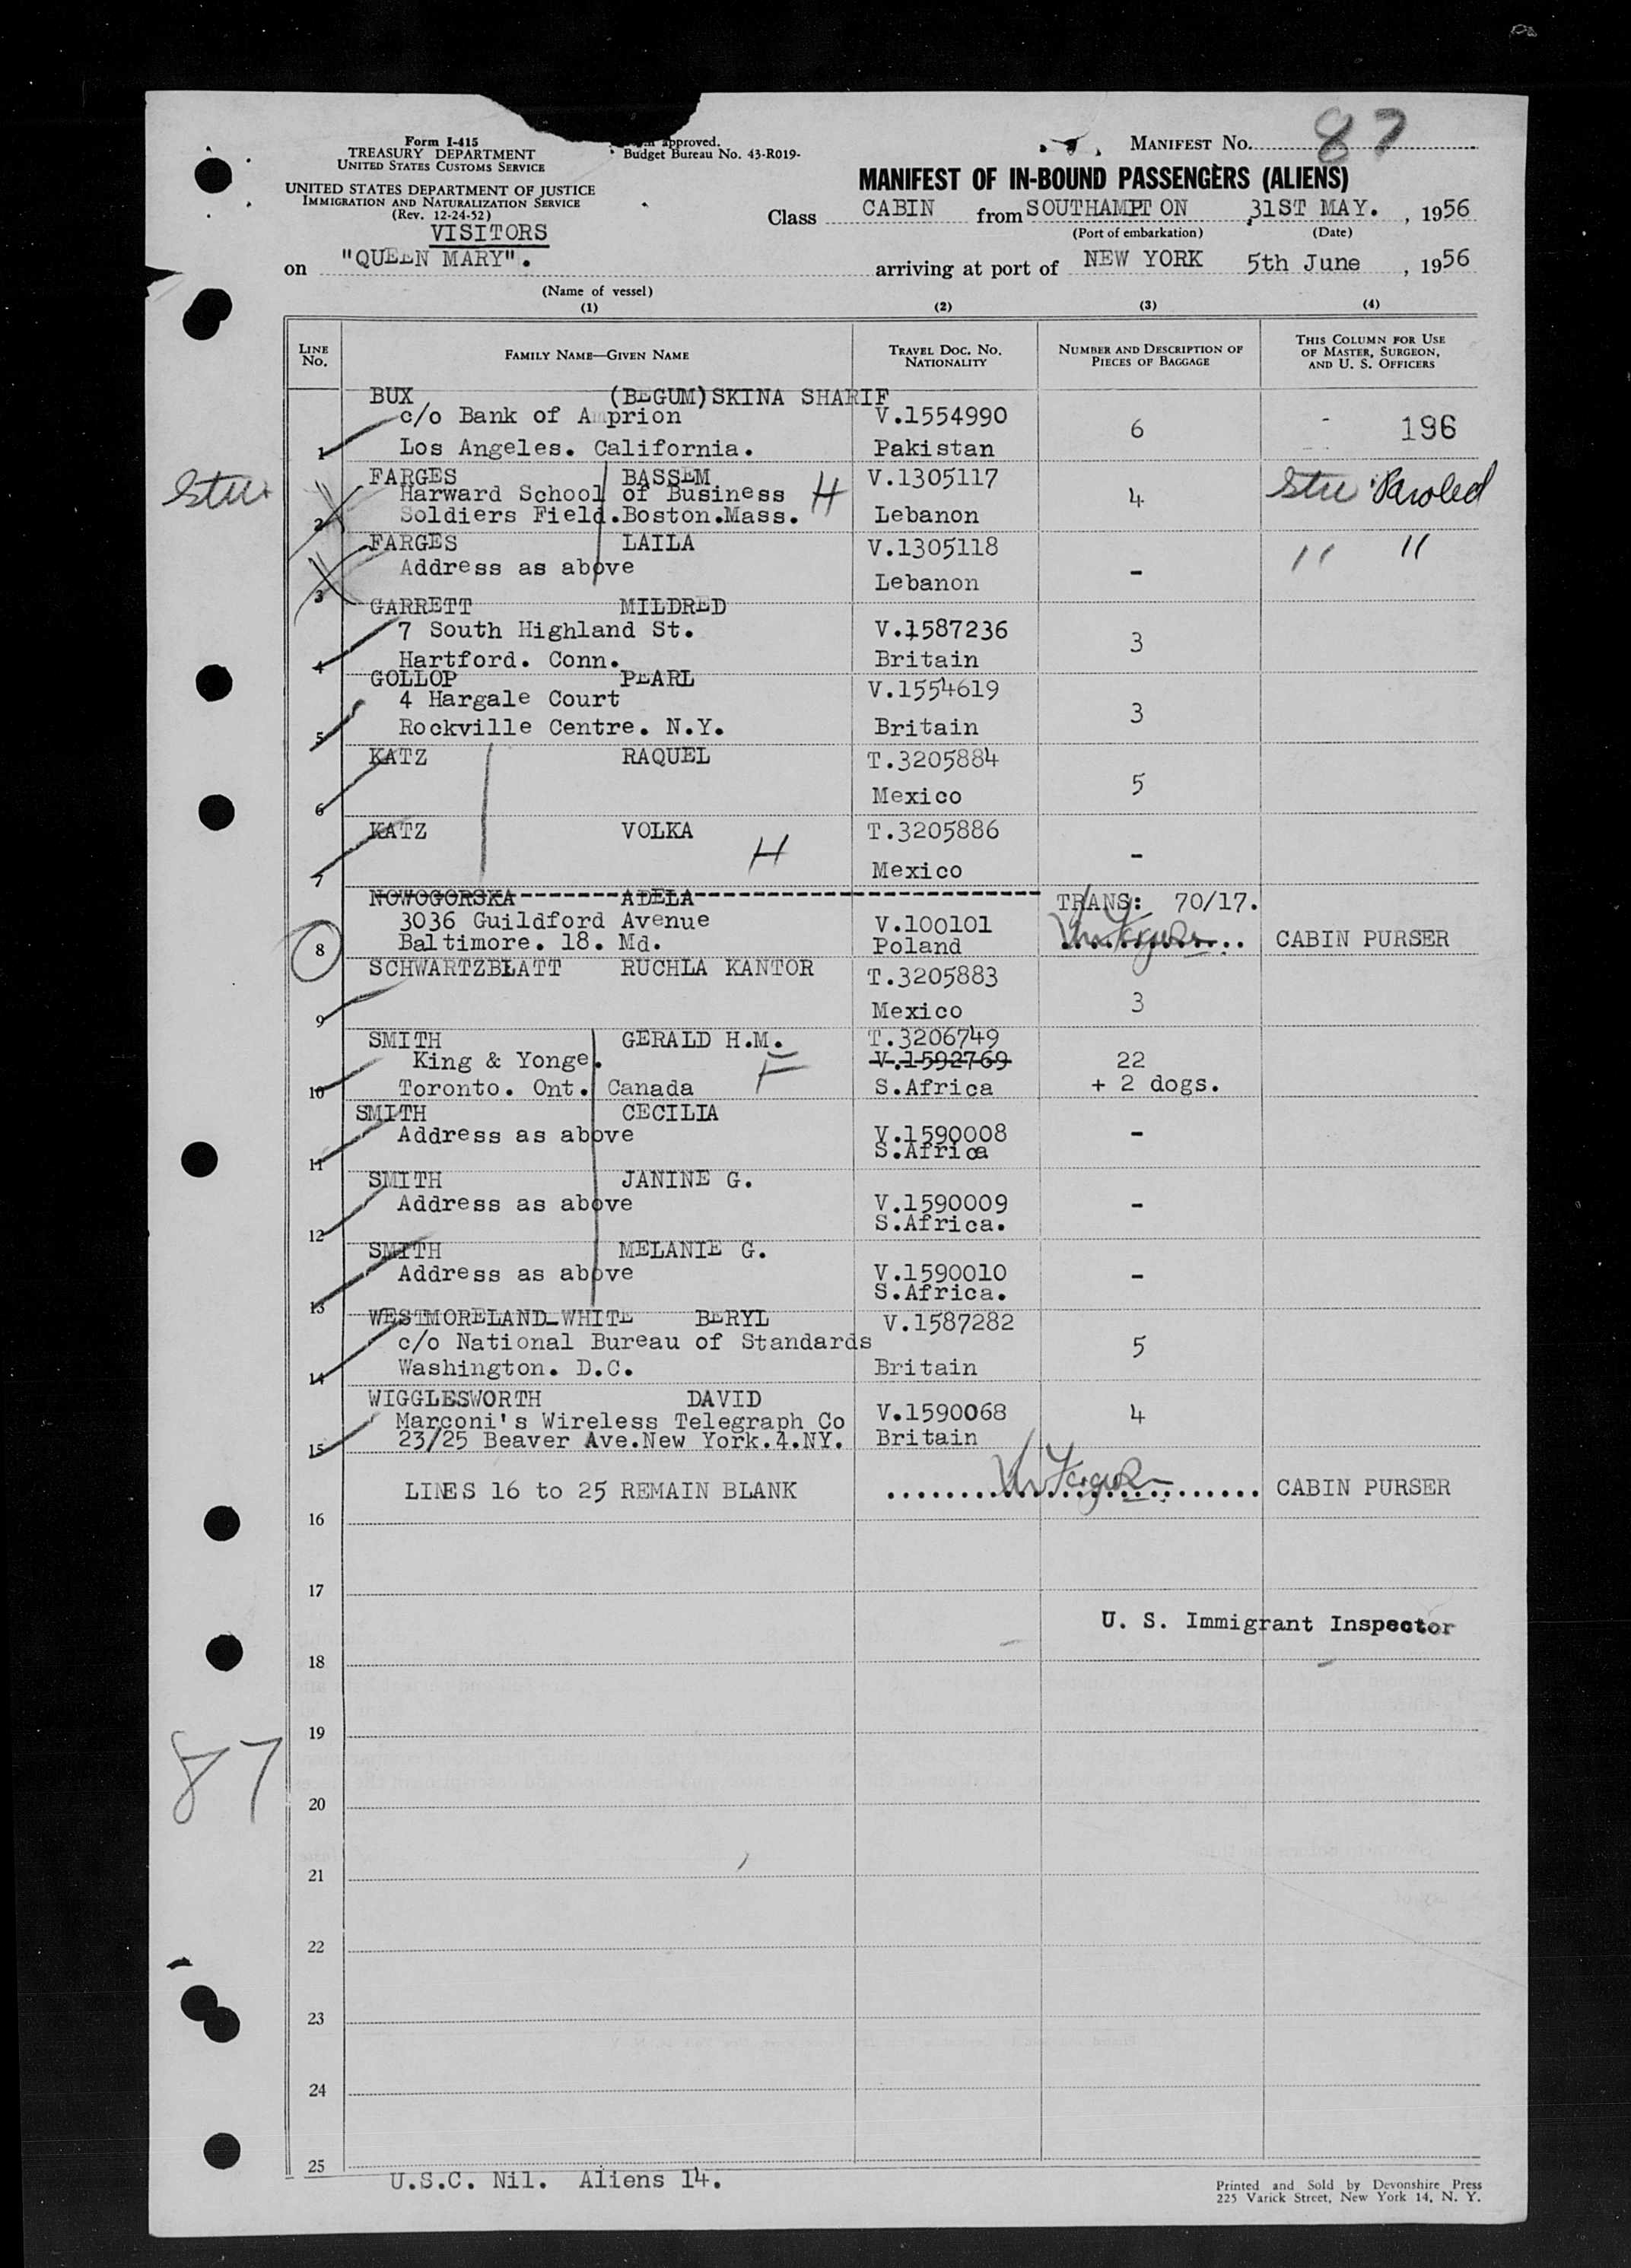 Form I-415
TREASURY DEPARTMENT
UNITED STATES CUSTOMS SERVICE
UNITED STATES DEPARTMENT OF JUSTICE
IMMIGRATION AND NATURALIZATION SERVICE
(Rev. 12-24-52)
VISITORS
approved.
Budget Bureau No. 43-R019-
MANIFEST No. 87
MANIFEST OF IN-BOUND PASSENGERS (ALIENS)
Class CABIN from SOUTHAMPTON 31ST MAY. , 1956
(Port of embarkation) (Date)
on "QUEEN MARY". arriving at port of NEW YORK 5th June , 1956
(Name of vessel)
(1) (2) (3) (4)
LINE No. FAMILY NAME—GIVEN NAME TRAVEL DOC. No. NATIONALITY NUMBER AND DESCRIPTION OF PIECES OF BAGGAGE THIS COLUMN FOR USE OF MASTER, SURGEON, AND U. S. OFFICERS
BUX (BEGUM) SKINA SHARIF
c/o Bank of A prion V.1554990 6 196
1 Los Angeles. California. Pakistan
FARGES BASSEM V.1305117
Stu Harward School of Business H 4 Stu Paroled
2 Soldiers Field.Boston.Mass. Lebanon
FARGES LAILA V.1305118 " "
Address as above -
3 Lebanon
GARRETT MILDRED
7 South Highland St. V.1587236 3
4 Hartford. Conn. Britain
GOLLOP PEARL V.1554619
4 Hargale Court 3
5 Rockville Centre. N.Y. Britain
KATZ RAQUEL T.3205884
6 Mexico 5
KATZ VOLKA T.3205886
H -
7 Mexico
NOWOGORSKA ADELA TRANS: 70/17.
3036 Guildford Avenue V.100101
8 Baltimore. 18. Md. Poland CABIN PURSER
SCHWARTZBLATT RUCHLA KANTOR T.3205883
9 Mexico 3
SMITH GERALD H.M. T.3206749
King & Yonge. F V.1592769 22
10 Toronto. Ont. Canada S.Africa + 2 dogs.
SMITH CECILIA
Address as above V.1590008 -
11 S.Africa
SMITH JANINE G.
Address as above V.1590009 -
12 S.Africa.
SMITH MELANIE G.
Address as above V.1590010 -
13 S.Africa.
WESTMORELAND-WHITE BERYL V.1587282
c/o National Bureau of Standards 5
14 Washington. D.C. Britain
WIGGLESWORTH DAVID
Marconi's Wireless Telegraph Co V.1590068 4
15 23/25 Beaver Ave.New York.4.NY. Britain
LINES 16 to 25 REMAIN BLANK CABIN PURSER
16
17
U. S. Immigrant Inspector
18
19
87
20
21
22
23
24
25
U.S.C. Nil. Aliens 14.
Printed and Sold by Devonshire Press
225 Varick Street, New York 14, N. Y.